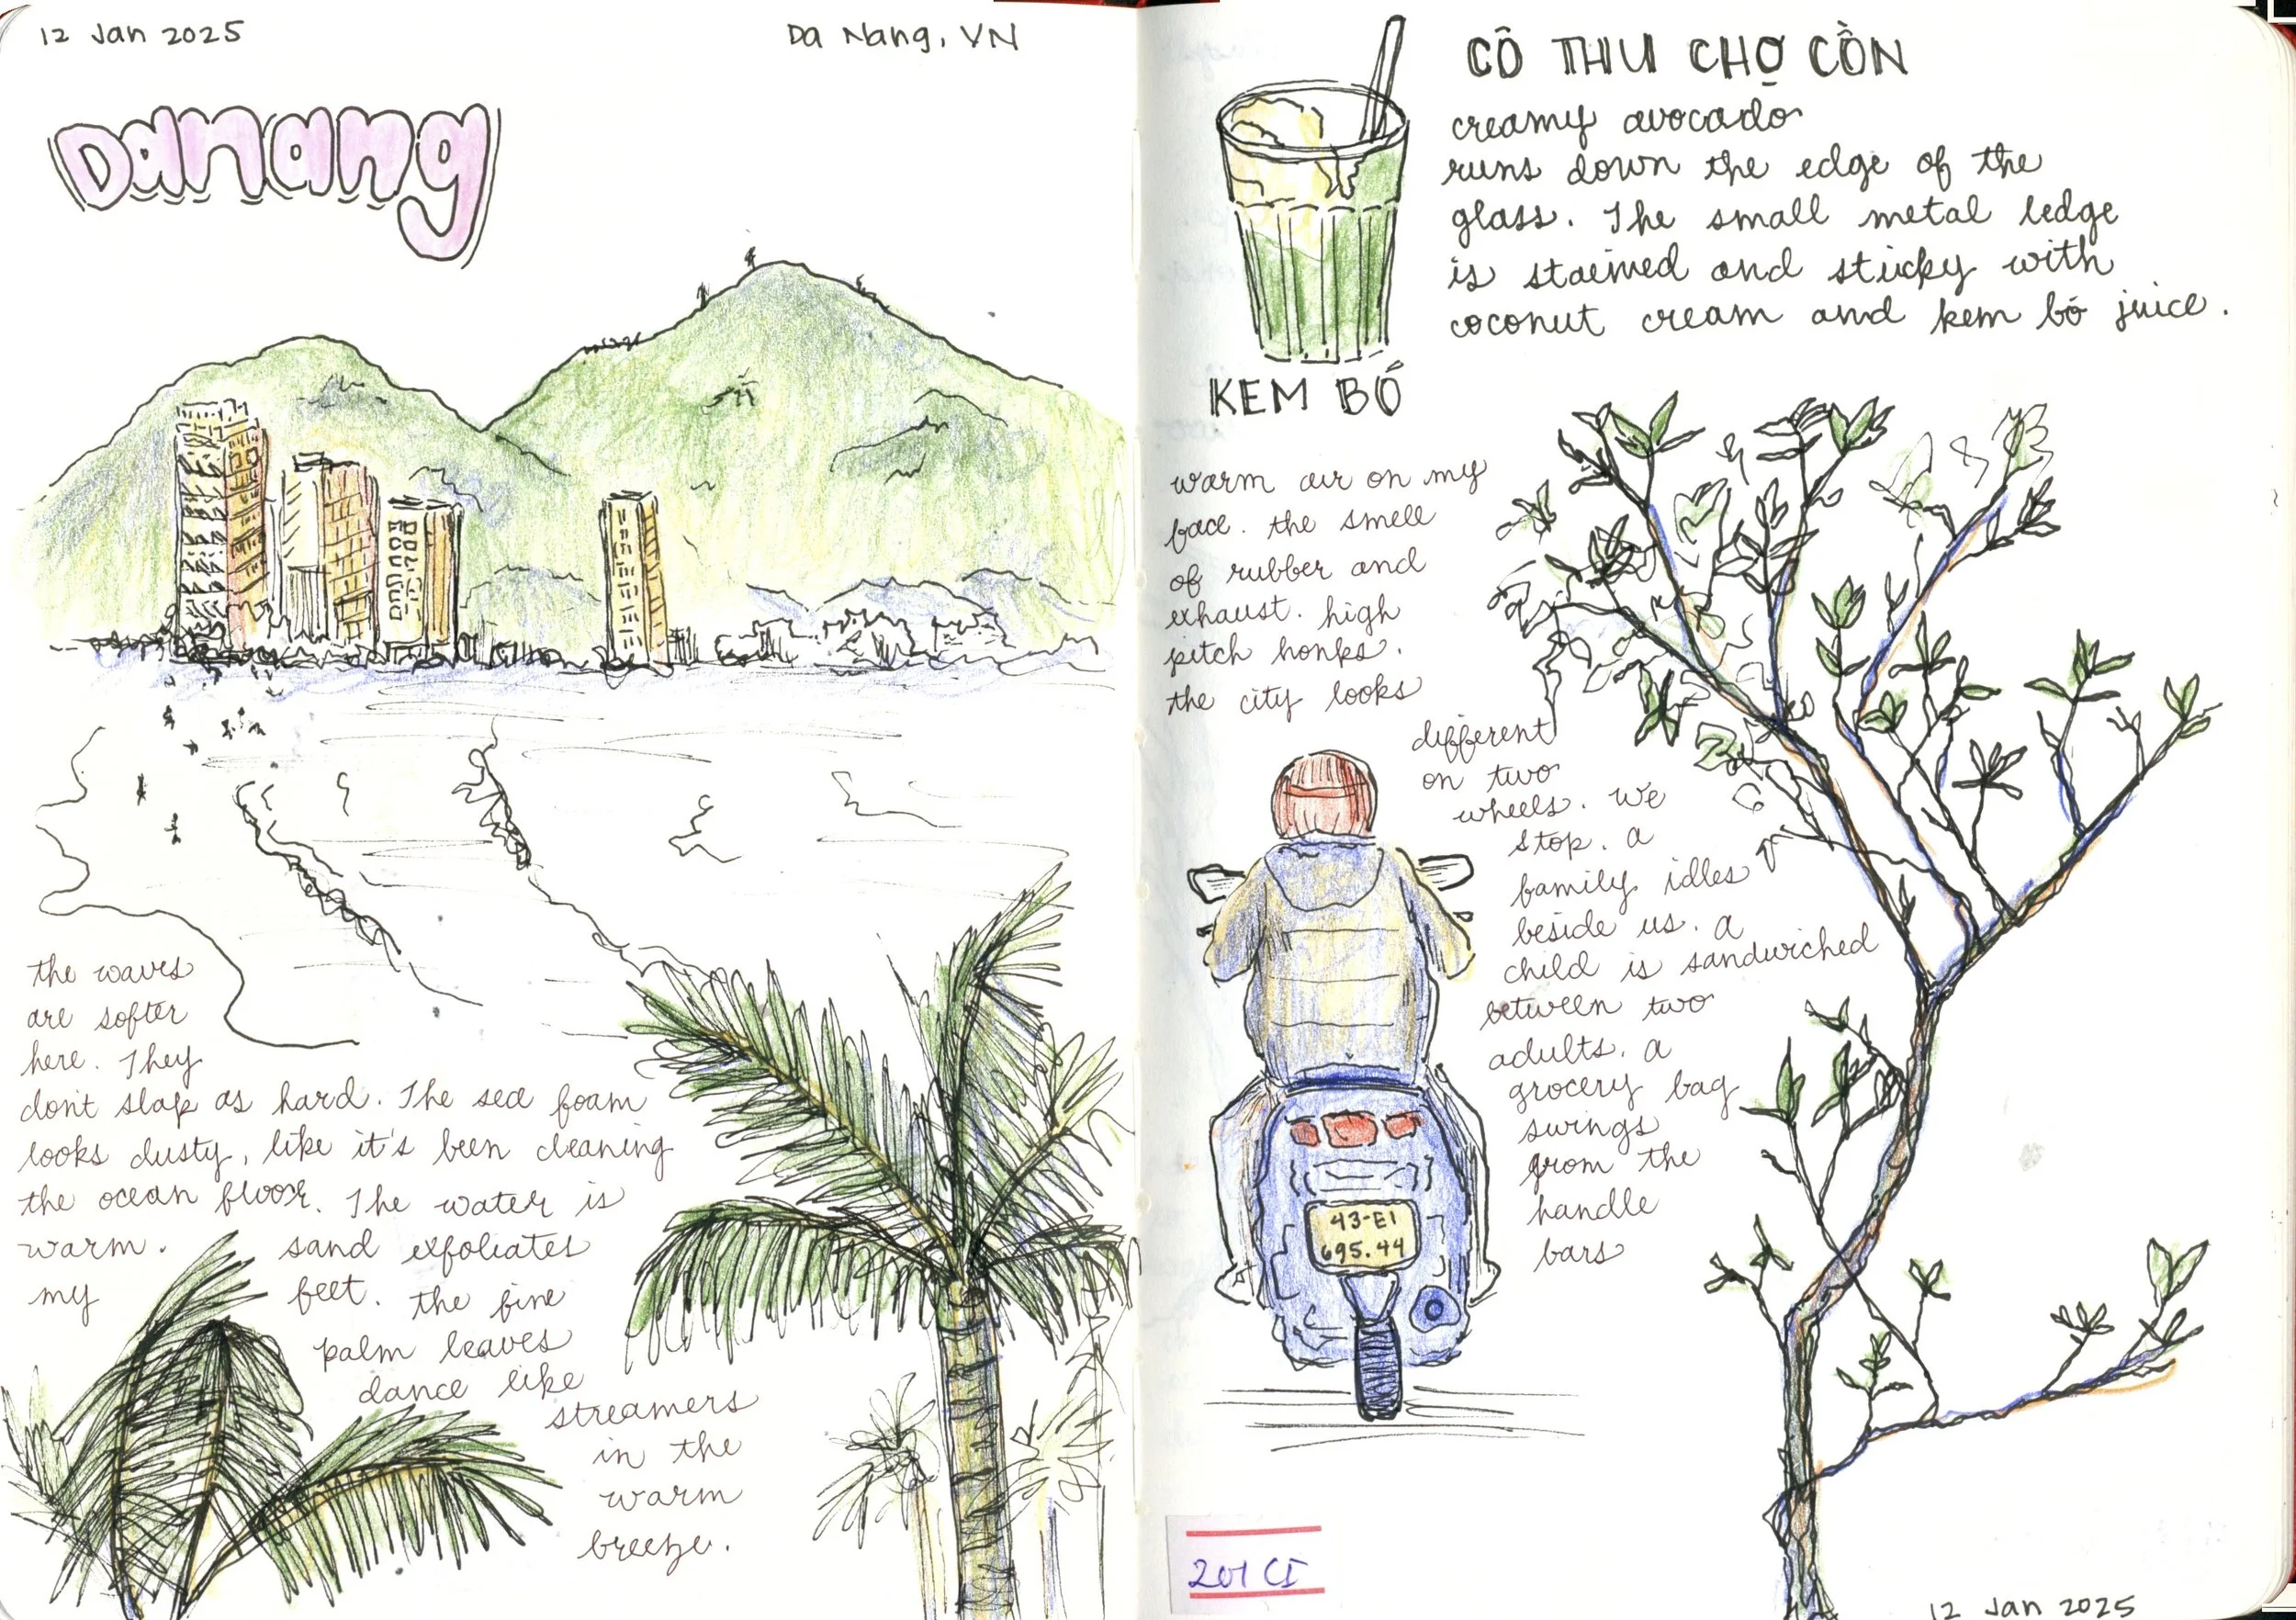 12 Jan 2025
Da Nang, VN
Danang
the waves
are softer
here. They
don't slap as hard. The sea foam
looks dusty, like it's been cleaning
the ocean floor. The water is
warm. sand exfoliates
my feet. the fine
palm leaves
dance like
streamers
in the
warm
breeze.
CÔ THU CHỢ CỒN
creamy avocado
runs down the edge of the
glass. The small metal ledge
is stained and sticky with
coconut cream and kem bó juice.
KEM BÓ
warm air on my
face. the smell
of rubber and
exhaust. high
pitch honks.
the city looks
different
on two
wheels. we
stop. a
family idles
beside us. a
child is sandwiched
between two
adults. a
grocery bag
swings
from the
handle
bars
43-E1
695.44
201 CI
12 Jan 2025